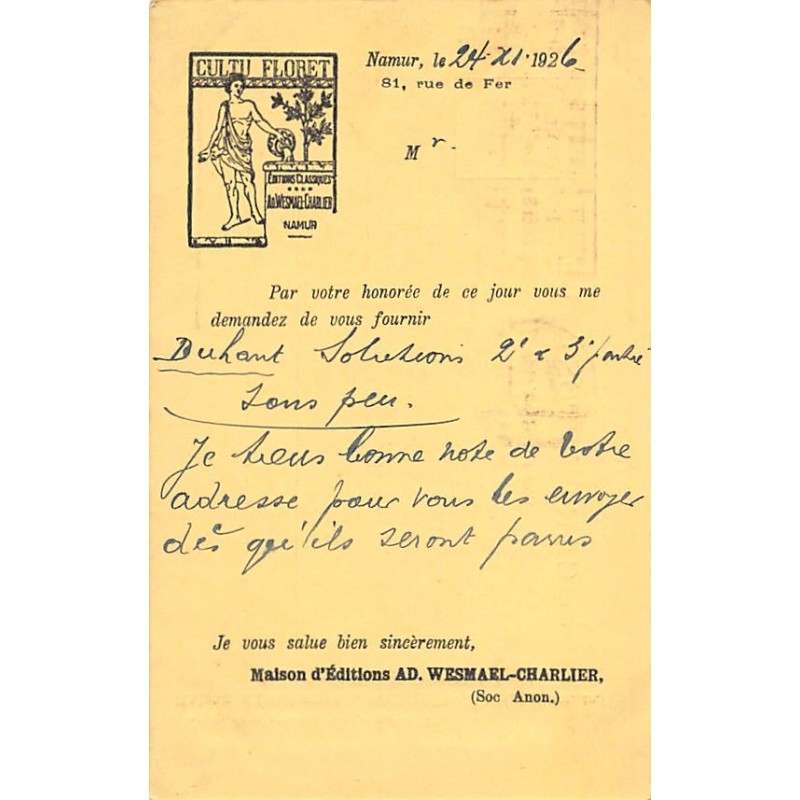 CULTU FLORET
EDITIONS CLASSIQUES
AD. WESMAEL-CHARLIER
NAMUR
Namur, le 24-XI-1926
81, rue de Fer
Mr.
Par votre honorée de ce jour vous me
demandez de vous fournir
Duhant Solutions 2e & 3e partie
sous peu.
Je tiens bonne note de votre
adresse pour vous les envoyer
dès qu'ils seront parus
Je vous salue bien sincèrement,
Maison d'Éditions AD. WESMAEL-CHARLIER,
(Soc Anon.)